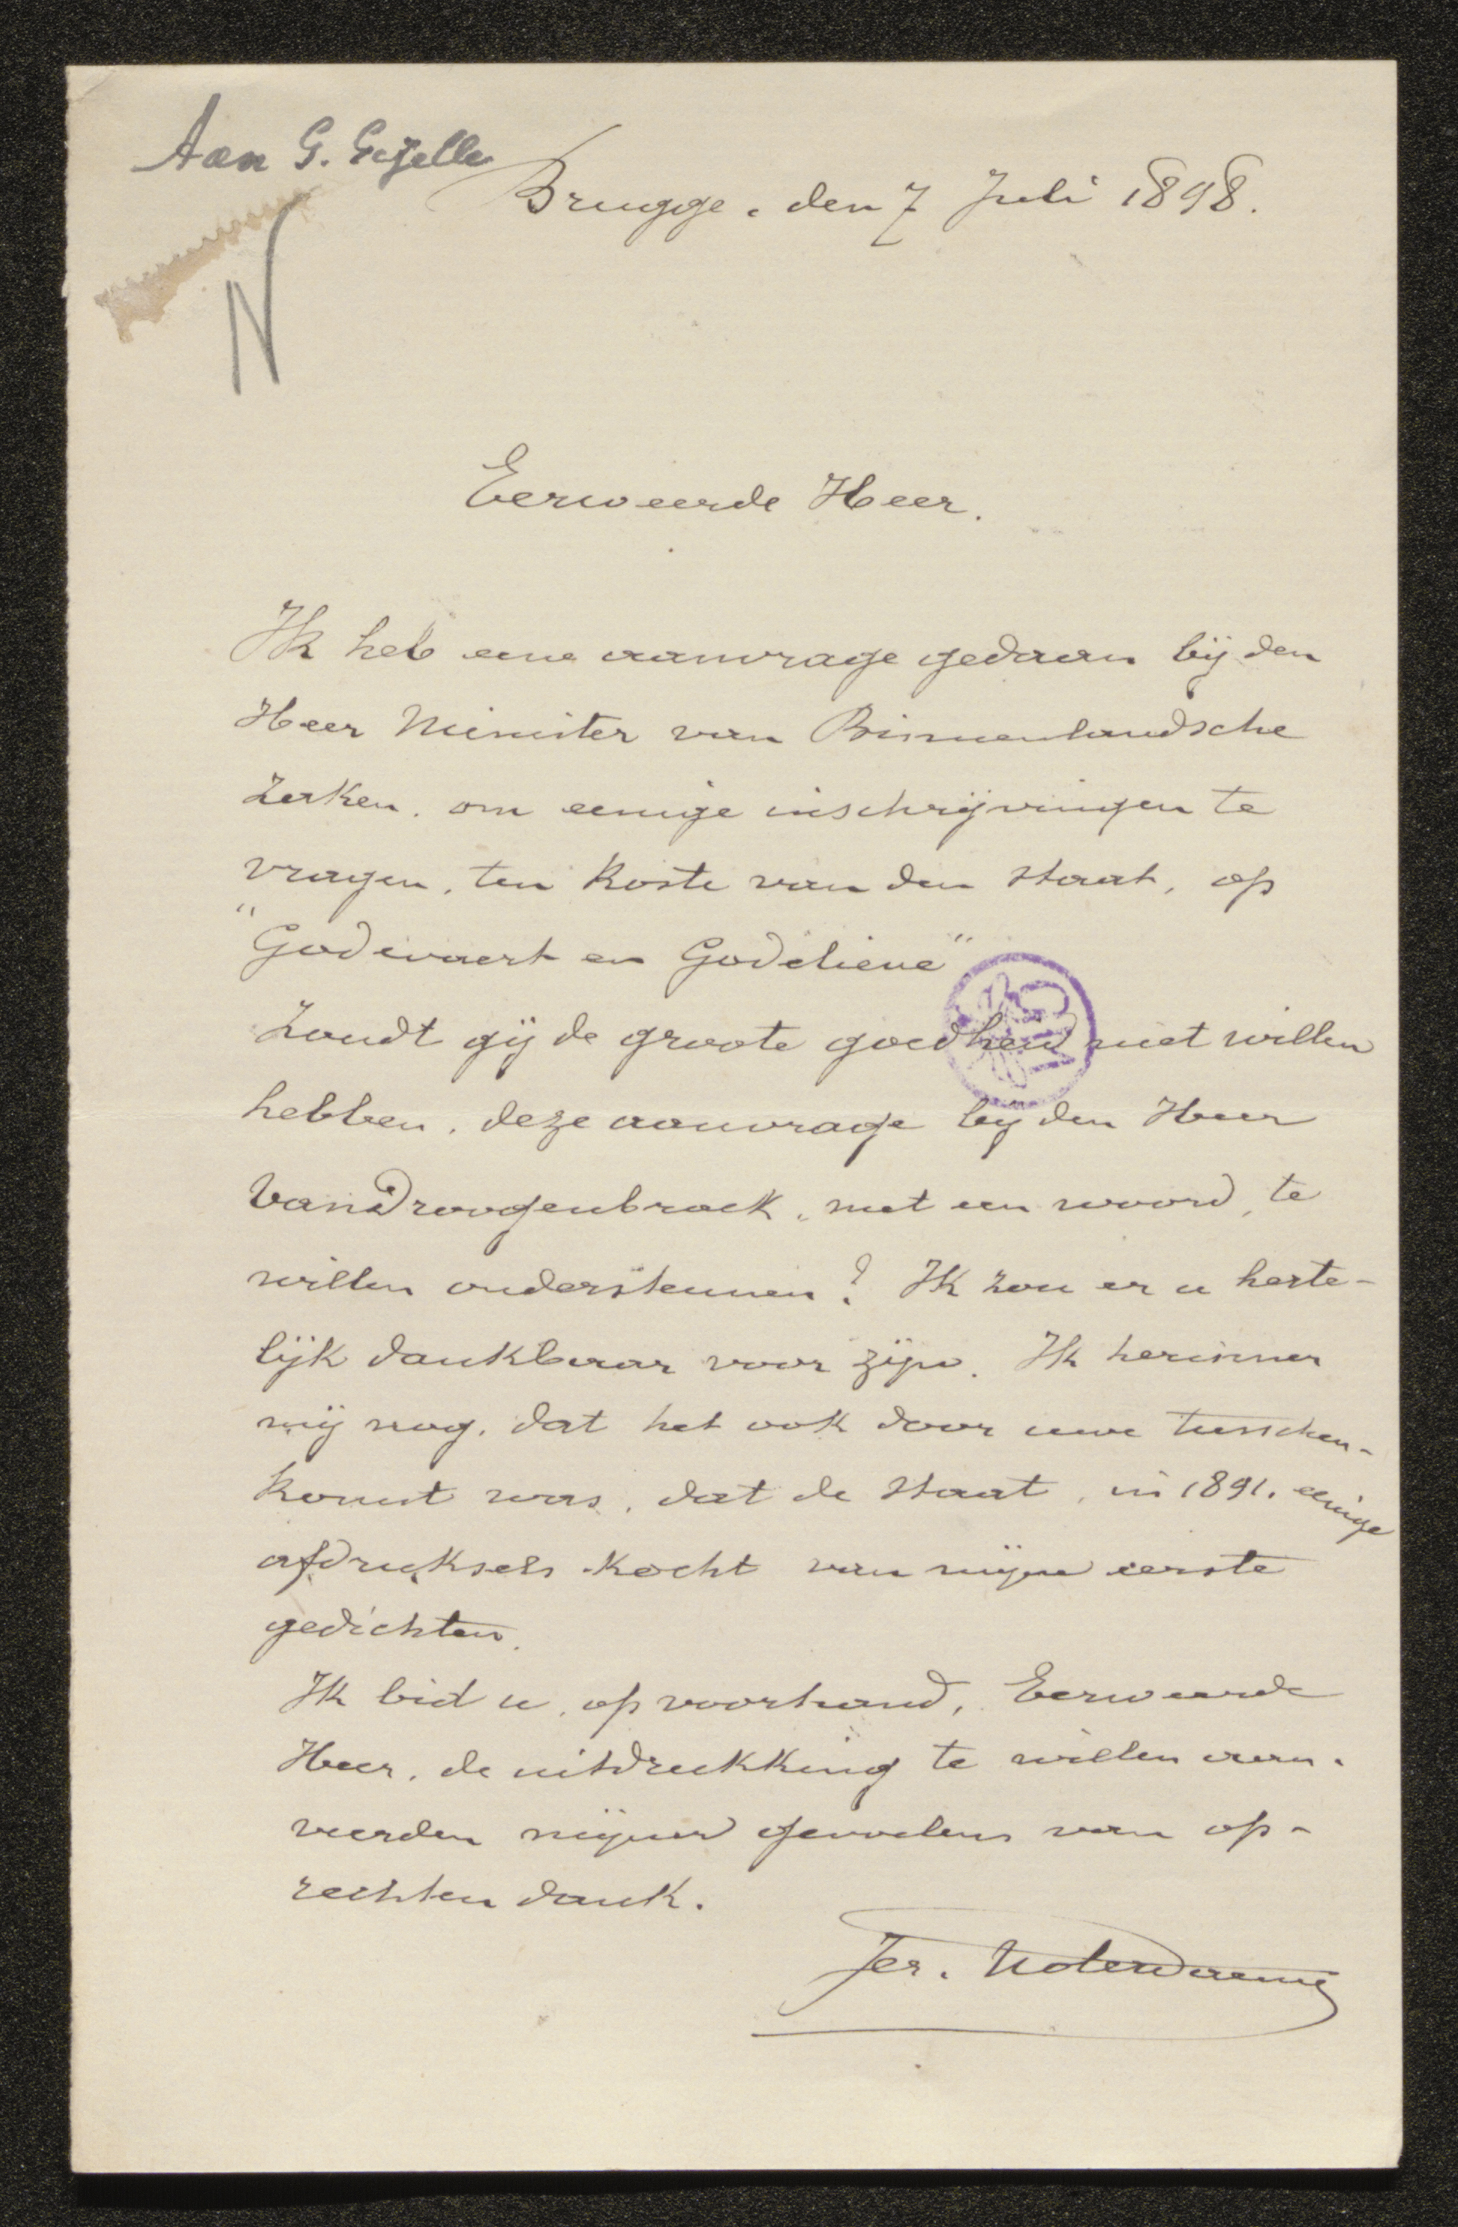 Aan G. Gezelle
Brugge, den 7 Juli 1898.
N
Eerweerde Heer.
Ik heb eene aanvrage gedaan bij den
Heer Minister van Binnenlandsche
Zaken, om eenige inschrijvingen te
vragen, ten koste van den Staat, op
"Godevaert en Godelieve"
Zoudt gij de groote goedheid niet willen
hebben, deze aanvrage bij den Heer
Van Droogenbroeck, met een woord, te
willen ondersteunen? Ik zou er u herte-
lijk dankbaar voor zijn. Ik herinner
mij nog, dat het ook door uwe tusschen-
komst was, dat de Staat, in 1891, eenige
afdruksels kocht van mijne eerste
gedichten.
Ik bid u, op voorhand, Eerweerde
Heer, de uitdrukking te willen aan-
veerden mijner gevoelens van op-
rechten dank.
Jer. Noterdaeme